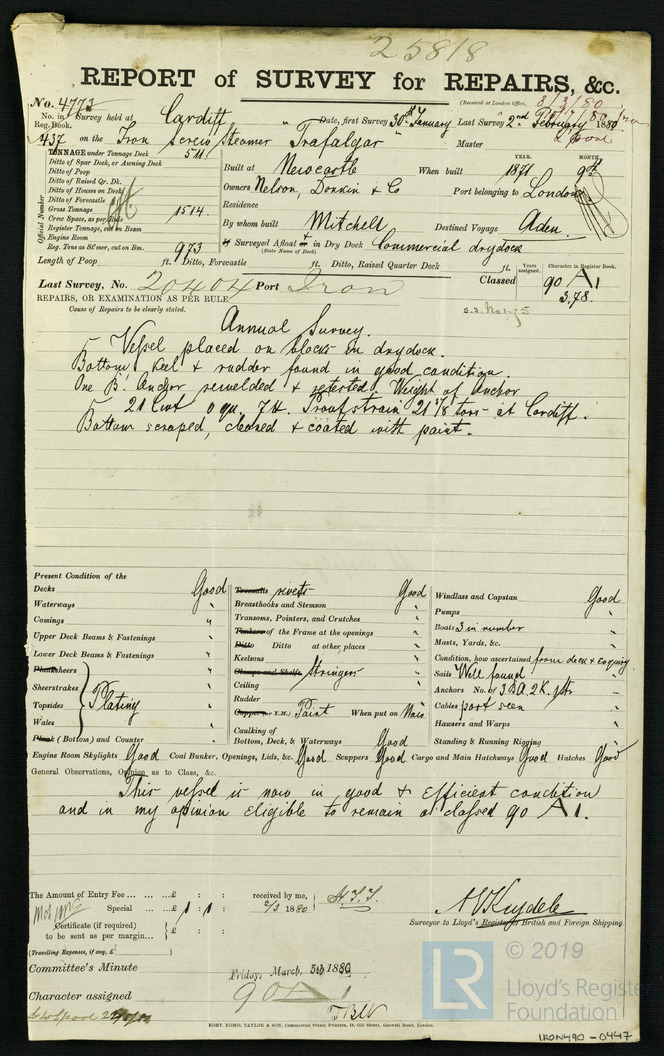 25818
REPORT of SURVEY for REPAIRS, &c.
(Received at London Office, 8/3/80
No. 4773
No. in Reg. Book. Survey held at Cardiff Date, first Survey 30th January Last Survey 2nd February 1880.
437 on the Iron Screw Steamer "Trafalgar" Master
TONNAGE under Tonnage Deck 1511
Ditto of Spar Deck, or Awning Deck
Ditto of Poop
Ditto of Raised Qr. Dk.
Ditto of Houses on Deck
Ditto of Forecastle
Gross Tonnage 1514.
Crew Space, as per Rule
Register Tonnage, cut on Beam
Engine Room
Reg. Tons as St'mer, cut on Bm. 973
Official Number
YEAR. MONTH.
Built at Newcastle When built 1871 9th
Owners Nelson, Donkin & Co Port belonging to London
Residence
By whom built Mitchell Destined Voyage Aden.
If Surveyed Afloat or in Dry Dock Commercial drydock
(State Name of Dock)
Length of Poop ft. Ditto, Forecastle ft. Ditto, Raised Quarter Deck ft.
Years assigned. Character in Register Book,
Last Survey, No. 20404 Port Iron Classed 90 A1
3.78.
REPAIRS, OR EXAMINATION AS PER RULE
Cause of Repairs to be clearly stated.
S.S. No 1-75
Annual Survey.
Vessel placed on blocks in drydock.
Bottom, keel & rudder found in good condition.
One B. Anchor rewelded & retested. Weight of Anchor
21 Cwt 0 qu. 7 lb. Proofstrain 21 5/8 tons at Cardiff.
Bottom scraped, cleaned & coated with paint.
Present Condition of the
Decks Good
Waterways "
Comings "
Upper Deck Beams & Fastenings "
Lower Deck Beams & Fastenings "
Planksheers
Sheerstrakes
Topsides Plating
Wales
Plank (Bottom) and Counter "
Treenails rivets Good
Breasthooks and Stemson "
Transoms, Pointers, and Crutches "
Timbers of the Frame at the openings "
Ditto Ditto at other places "
Keelsons "
Clamps and Shelfs Stringers "
Ceiling "
Rudder "
Copper (or Y.M.) Paint When put on Now
Caulking of
Bottom, Deck, & Waterways Good
Windlass and Capstan Good
Pumps "
Boats 3 in number "
Masts, Yards, &c. "
Condition, how ascertained from deck & enquiry
Sails Well found
Anchors No. of 3 B.A. 2 K. 1 Str
Cables part seen
Hawsers and Warps "
Standing & Running Rigging "
Engine Room Skylights Good Coal Bunker, Openings, Lids, &c. Good Scuppers Good Cargo and Main Hatchways Good Hatches Good
General Observations, Opinion as to Class, &c.
This vessel is now in good & Efficient condition
and in my opinion eligible to remain as classed 90 A1.
The Amount of Entry Fee ... ... ...£ : : received by me,
Special ... ...£ 1 : 1 : 2/3 1880
Certificate (if required) to be sent as per margin... £ : :
(Travelling Expenses, if any, £ )
Surveyor to Lloyd's Register of British and Foreign Shipping.
Committee's Minute Friday, March, 5th 1880
Character assigned 90 A1
ROBT. EDMD. TAYLOR & SON, Commercial Steam Printers, 19, Old Street, Goswell Road, London.
© 2019
LR
Lloyd's Register
Foundation
IRON490-0447